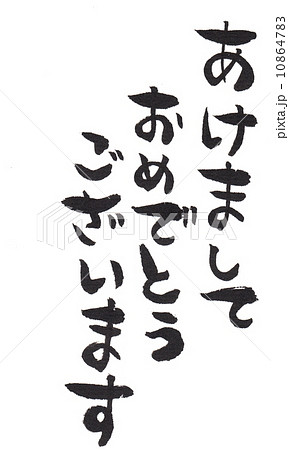 あけまして
おめでとう
ございます
pixta.jp - 10864783